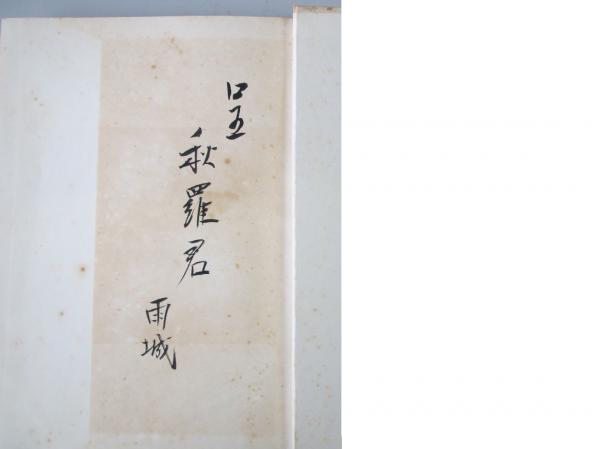 呈
秋羅君
雨城